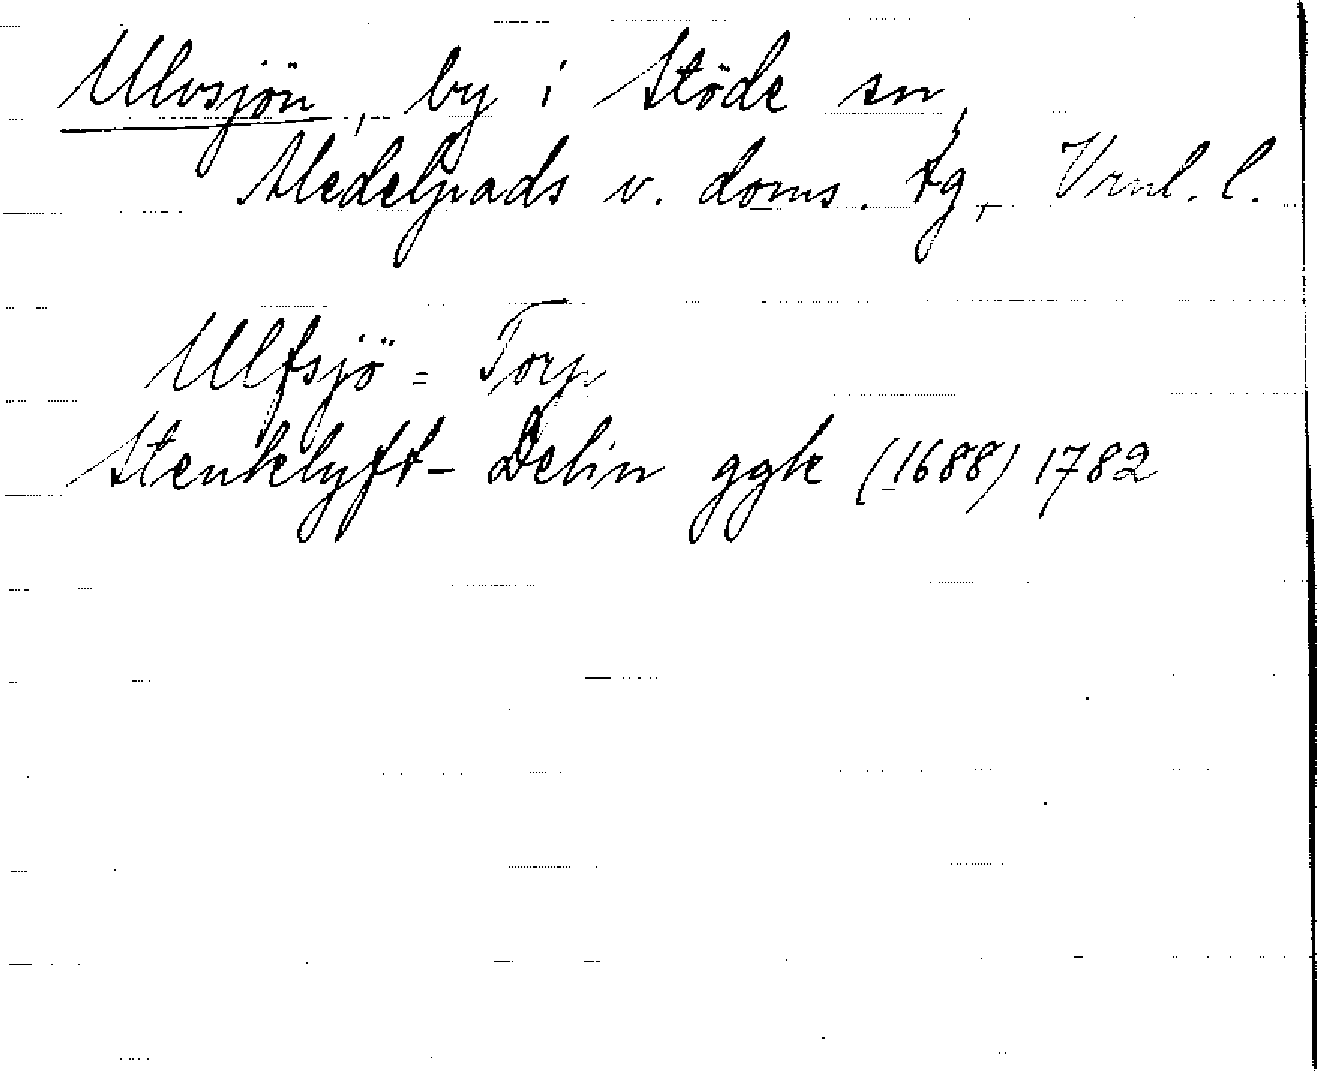 Ulvsjön, by i Stöde sn,
Medelpads v. doms. tg, Vrnl. l.
Ulfsjö = Torp
Stenklyft- Delin ggk (1688) 1782